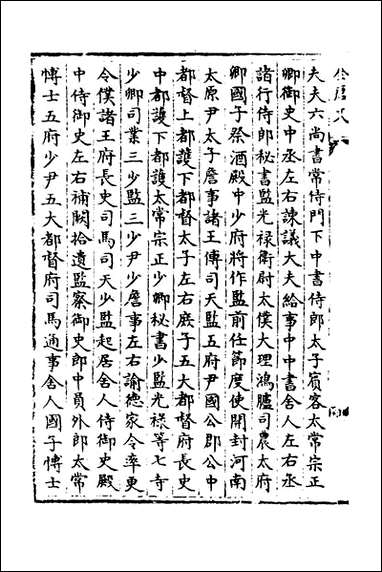 夫夫六尚書常侍門下中書侍郎太子賓客太常宗正
卿御史中丞左右諫議大夫給事中中書舍人左右丞
諸行侍郎秘書監光祿衛尉太僕大理鴻臚司農太府
卿國子祭酒殿中少府將作監前任節度使開封河南
太原尹太子詹事諸王傅司天監五府尹國公郡公中
都督上都護下都督太子左右庶子五大都督府長史
中都護下都護太常宗正少卿秘書少監光祿等七寺
少卿司業三少監三少尹少詹事左右諭德家令率更
令僕諸王府長史司馬司天少監起居舍人侍御史殿
中侍御史左右補闕拾遺監察御史郎中員外郎太常
博士五府少尹五大都督府司馬通事舍人國子博士